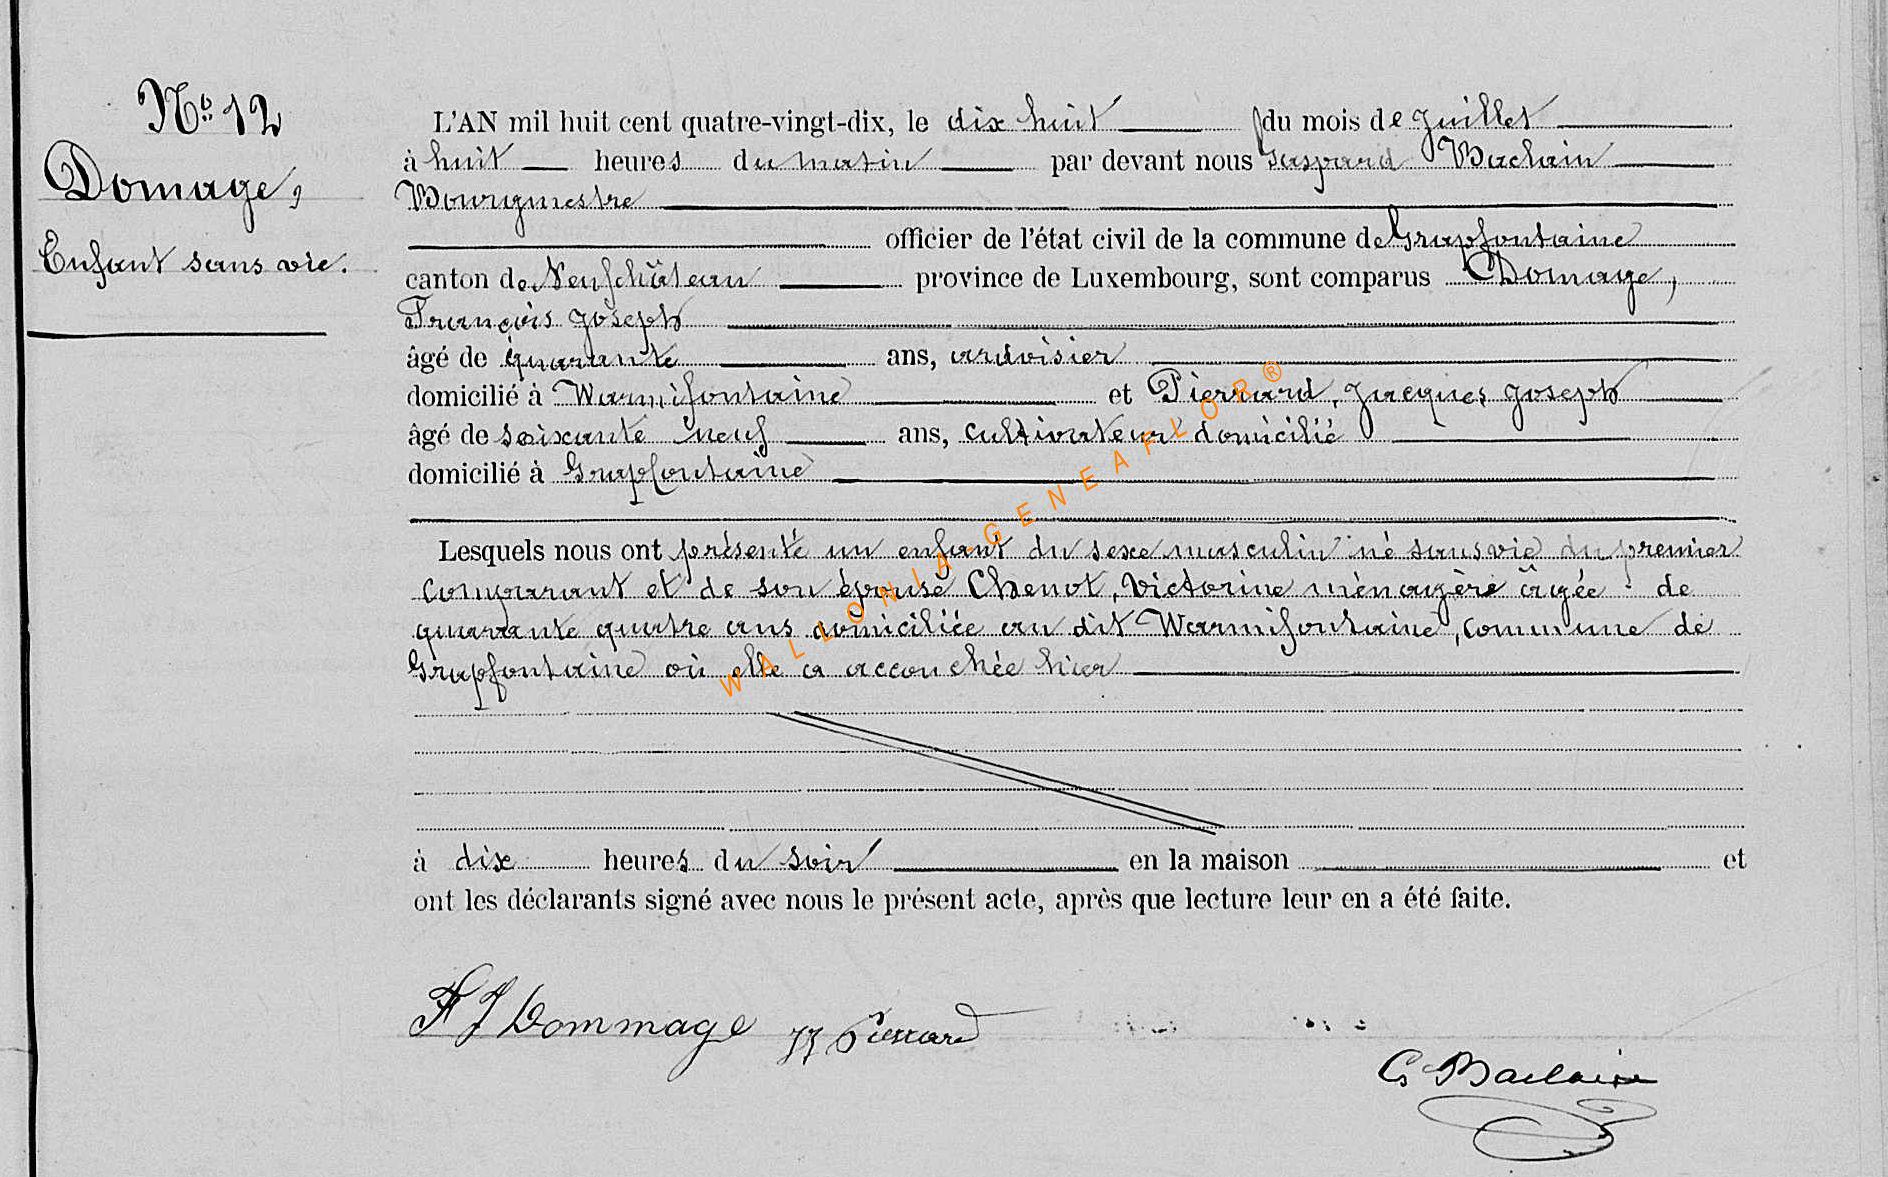 N° 12
Domage,
Enfant sans vie.
L'AN mil huit cent quatre-vingt-dix, le dix huit du mois de Juillet
à huit heures du matin par devant nous Gaspard Baclain
Bourgmestre
officier de l'état civil de la commune de Grapfontaine
canton de Neufchâteau province de Luxembourg, sont comparus Domage,
François Joseph
âgé de quarante ans, ardoisier
domicilié à Warmifontaine et Pierrard, Jacques Joseph
âgé de soixante neuf ans, cultivateur domicilié
domicilié à Grapfontaine
Lesquels nous ont présenté un enfant du sexe masculin né sans vie du premier
comparant et de son épouse Chenot, Victorine ménagère âgée de
quarante quatre ans domiciliée au dit Warmifontaine, commune de
Grapfontaine où elle a accouchée hier
à dix heures du soir en la maison et
ont les déclarants signé avec nous le présent acte, après que lecture leur en a été faite.
FJ Dommage JJ Pierrard
G Baclain
WALLONIA-GENEAFLOR®